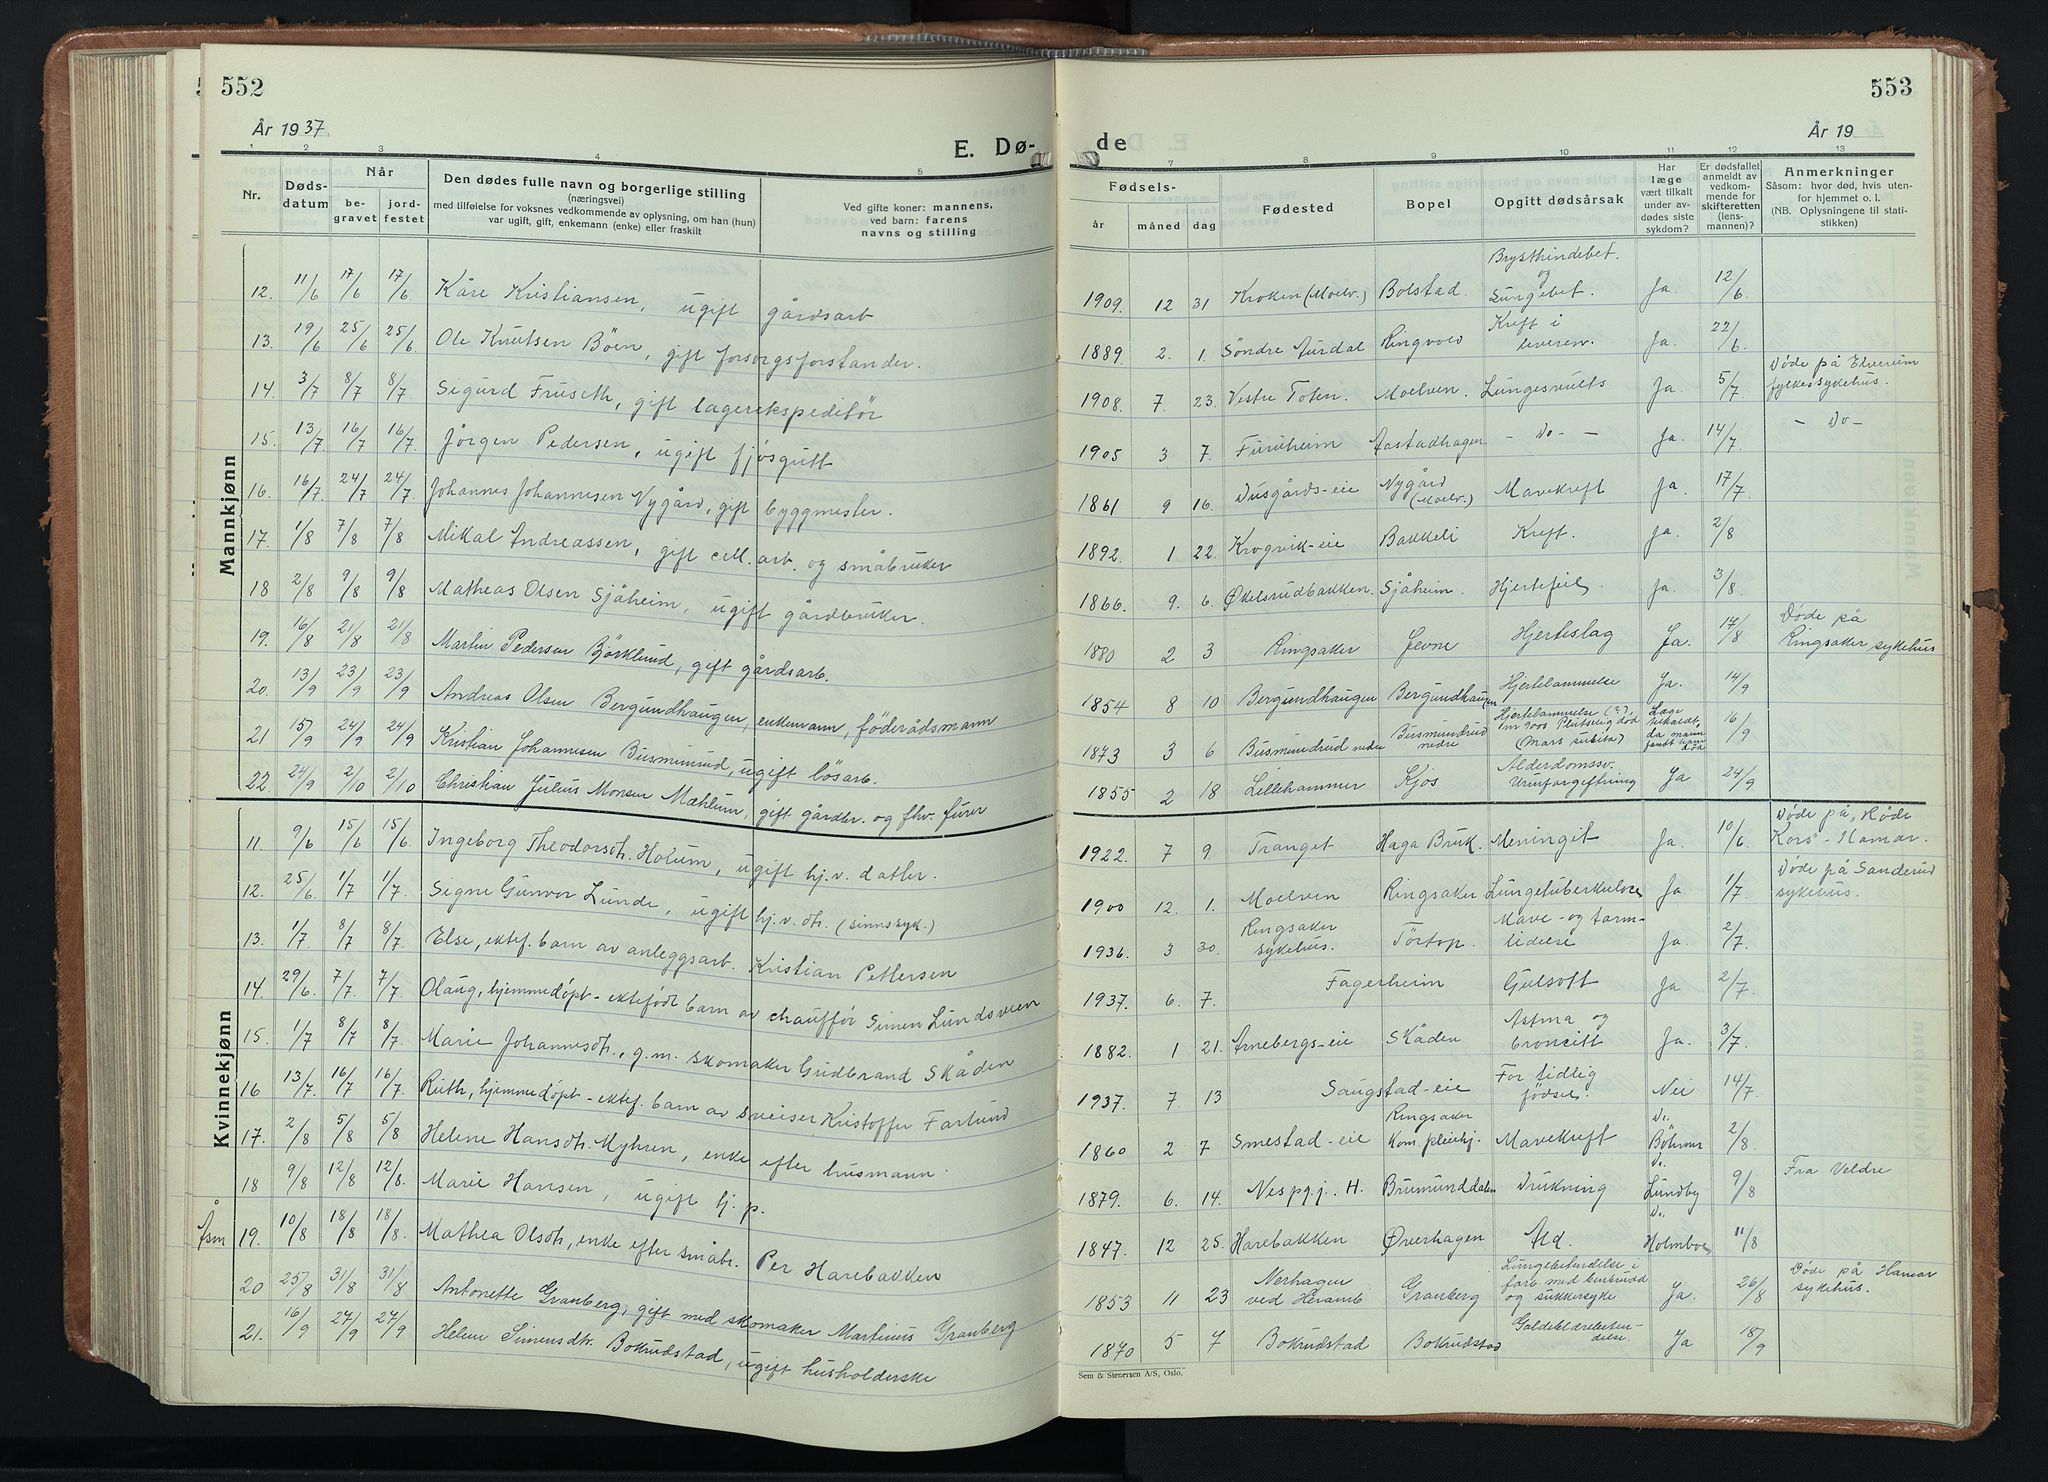 552
553
År 1937
År 19
E. Dø-
de
1 2 3 4 5
7 8 9 10 11 12 13
Nr.
Døds-
datum
Når
be-
gravet
jord-
festet
Den dødes fulle navn og borgerlige stilling
(næringsvei)
med tilføielse for voksnes vedkommende av oplysning, om han (hun)
var ugift, gift, enkemann (enke) eller fraskilt
Ved gifte koner: mannens,
ved barn: farens
navns og stilling
Fødsels-
år
måned
dag
Fødested
Bopel
Opgitt dødsårsak
Har
læge
vært tilkalt
under av-
dødes siste
sykdom?
Er dødsfallet
anmeldt av
vedkom-
mende for
skifteretten
(lens-
mannen)?
Anmerkninger
Såsom: hvor død, hvis uten-
for hjemmet o. l.
(NB. Oplysningene til stati-
stikken)
Mannkjønn
12. 11/6 17/6 17/6 Kåre Kristiansen, ugift gårdsarb 1909. 12 31 Kroken (Moelv.) Bolstad. Brysthindebet. og Lungebet. Ja. 12/6
13. 19/6 25/6 25/6 Ole Knutsen Böen, gift forsorgsforstander. 1889. 2. 1. Söndre Aurdal Ringvold Kreft i leveren. Ja. 22/6
14 3/7 8/7 8/7 Sigurd Fruseth, gift lagerekspeditör 1908. 7. 23. Vestre Toten. Moelven. Lungesvulst Ja. 5/7 Døde på Elverum fylkessykehus.
15. 13/7 16/7 16/7 Jörgen Pedersen, ugift fjösgutt 1905 3 7. Furuheim Aastadhagen - Do - - Ja. 14/7 - Do -
16. 16/7 24/7 24/7 Johannes Johannesen Nygård, gift byggmester. 1861 9 16. Dusgårds-eie Nygård (Moelv.) Mavekreft Ja. 17/7
17. 1/8 7/8 7/8 Mikal Andreassen, gift cell.arb. og småbruker 1892. 1 22. Krogvik-eie Bakkeli Kreft. Ja. 2/8
18 2/8 9/8 9/8 Matheas Olsen Sjåheim, ugift gårdbruker. 1866. 9. 6. Økelsrudbakken. Sjåheim. Hjertefeil. Ja. 3/8
19. 16/8 21/8 21/8 Martin Pedersen Björklund, gift gårdsarb. 1880 2 3 Ringsaker Jevne Hjerteslag Ja. 17/8 Døde på Ringsaker sykehus
20. 13/9 23/9 23/9 Andreas Olsen Bergundhaugen, enkemann, föderådsmann 1854 8 10 Bergundhaugen Bergundhaugen Hjertelammelse Ja. 14/9
21 15/9 24/9 24/9 Kristian Johannesen Busmunrud, ugift lösarb. 1873 3 6 Busmundrud nedre Busmundrud nedre Hjertelammelse (?), Plutselig död (Mars subita) Læge tilkaldt, da mann fandt ham död 16/9
22. 24/9 2/10 2/10 Christian Julius Monsen Mæhlum, gift gårdbr. og fhv. furer 1855 2 18 Lillehammer Kjos Alderdomssv. Urinforgiftning Ja 24/9
Kvinnekjønn
11 9/6 15/6 15/6 Ingeborg Theodorsdtr. Holum, ugift hj.v. datter. 1922. 7 9. Tranget Haga Bruk. Meningit Ja. 10/6 Døde på "Røde Kors" - Hamar.
12. 25/6 1/7 1/7 Signe Gunvor Lunde, ugift hj.v. dtr. (sinnssyk.) 1900 12. 1. Moelven Ringsaker Lungetuberkulose Ja 1/7 Døde på Sanderud sykehus.
13. 1/7 8/7 8/7 Else, ektef. barn av anleggsarb. Kristian Pettersen 1936. 3 30 Ringsaker sykehus. Törtop. Mave- og tarm- lidelse Ja. 2/7
14. 29/6 7/7 7/7 Olaug, hjemmedöpt - ektefödt barn av chaufför Simen Lundsveen 1937. 6. 7. Fagerheim Gulsott Ja 2/7
15. 1/7 8/7 8/7 Marie Johannesdtr., g.m. skomaker Gudbrand Skåden 1882. 1 21. Arnebergs-eie Skåden Astma og broncitt Ja. 3/7
16 13/7 16/7 16/7 Ruth, hjemmedöpt - ektef. barn av sveiser Kristoffer Farlund 1937. 7. 13 Saugstad-eie For tidlig födsel. Nei 14/7
17. 2/8 5/8 5/8 Helene Hansdtr. Myhren, enke efter husmann. 1860 2 7 Smestad-eie Ringsaker kom. pleiehj. Mavekreft Dr. Böhmer 2/8
18 9/8 12/8 12/8. Marie Hansen, ugift hj.p. 1879. 6. 14. Nes pgj., H. Brumunddalen Drukning Dr. Lundby 9/8 Fra Veldre
Åsm 19. 10/8 18/8 18/8 Mathea Olsdtr, enke efter småbr. Per Harebakken 1847. 12 25. Harebakken Øverhagen Ald. Dr. Holmboe 11/8
20 25/8 31/8 31/8 Antonette Granberg, gift med skomaker Martinius Granberg 1853 11 23 Nerhagen ved Heramb Granberg Lungebetendelse i forb. med benbrudd og sukkersyke Ja. 26/8 Døde på Hamar sykehus.
21. 16/9 27/9 27/9 Helene Simensdtr. Bokrudstad, ugift husholderske 1870 5 7 Bokrudstad Bokrudstad Galdeblærebeten- delse. Ja 18/9
Sem & Stenersen A/S, Oslo.